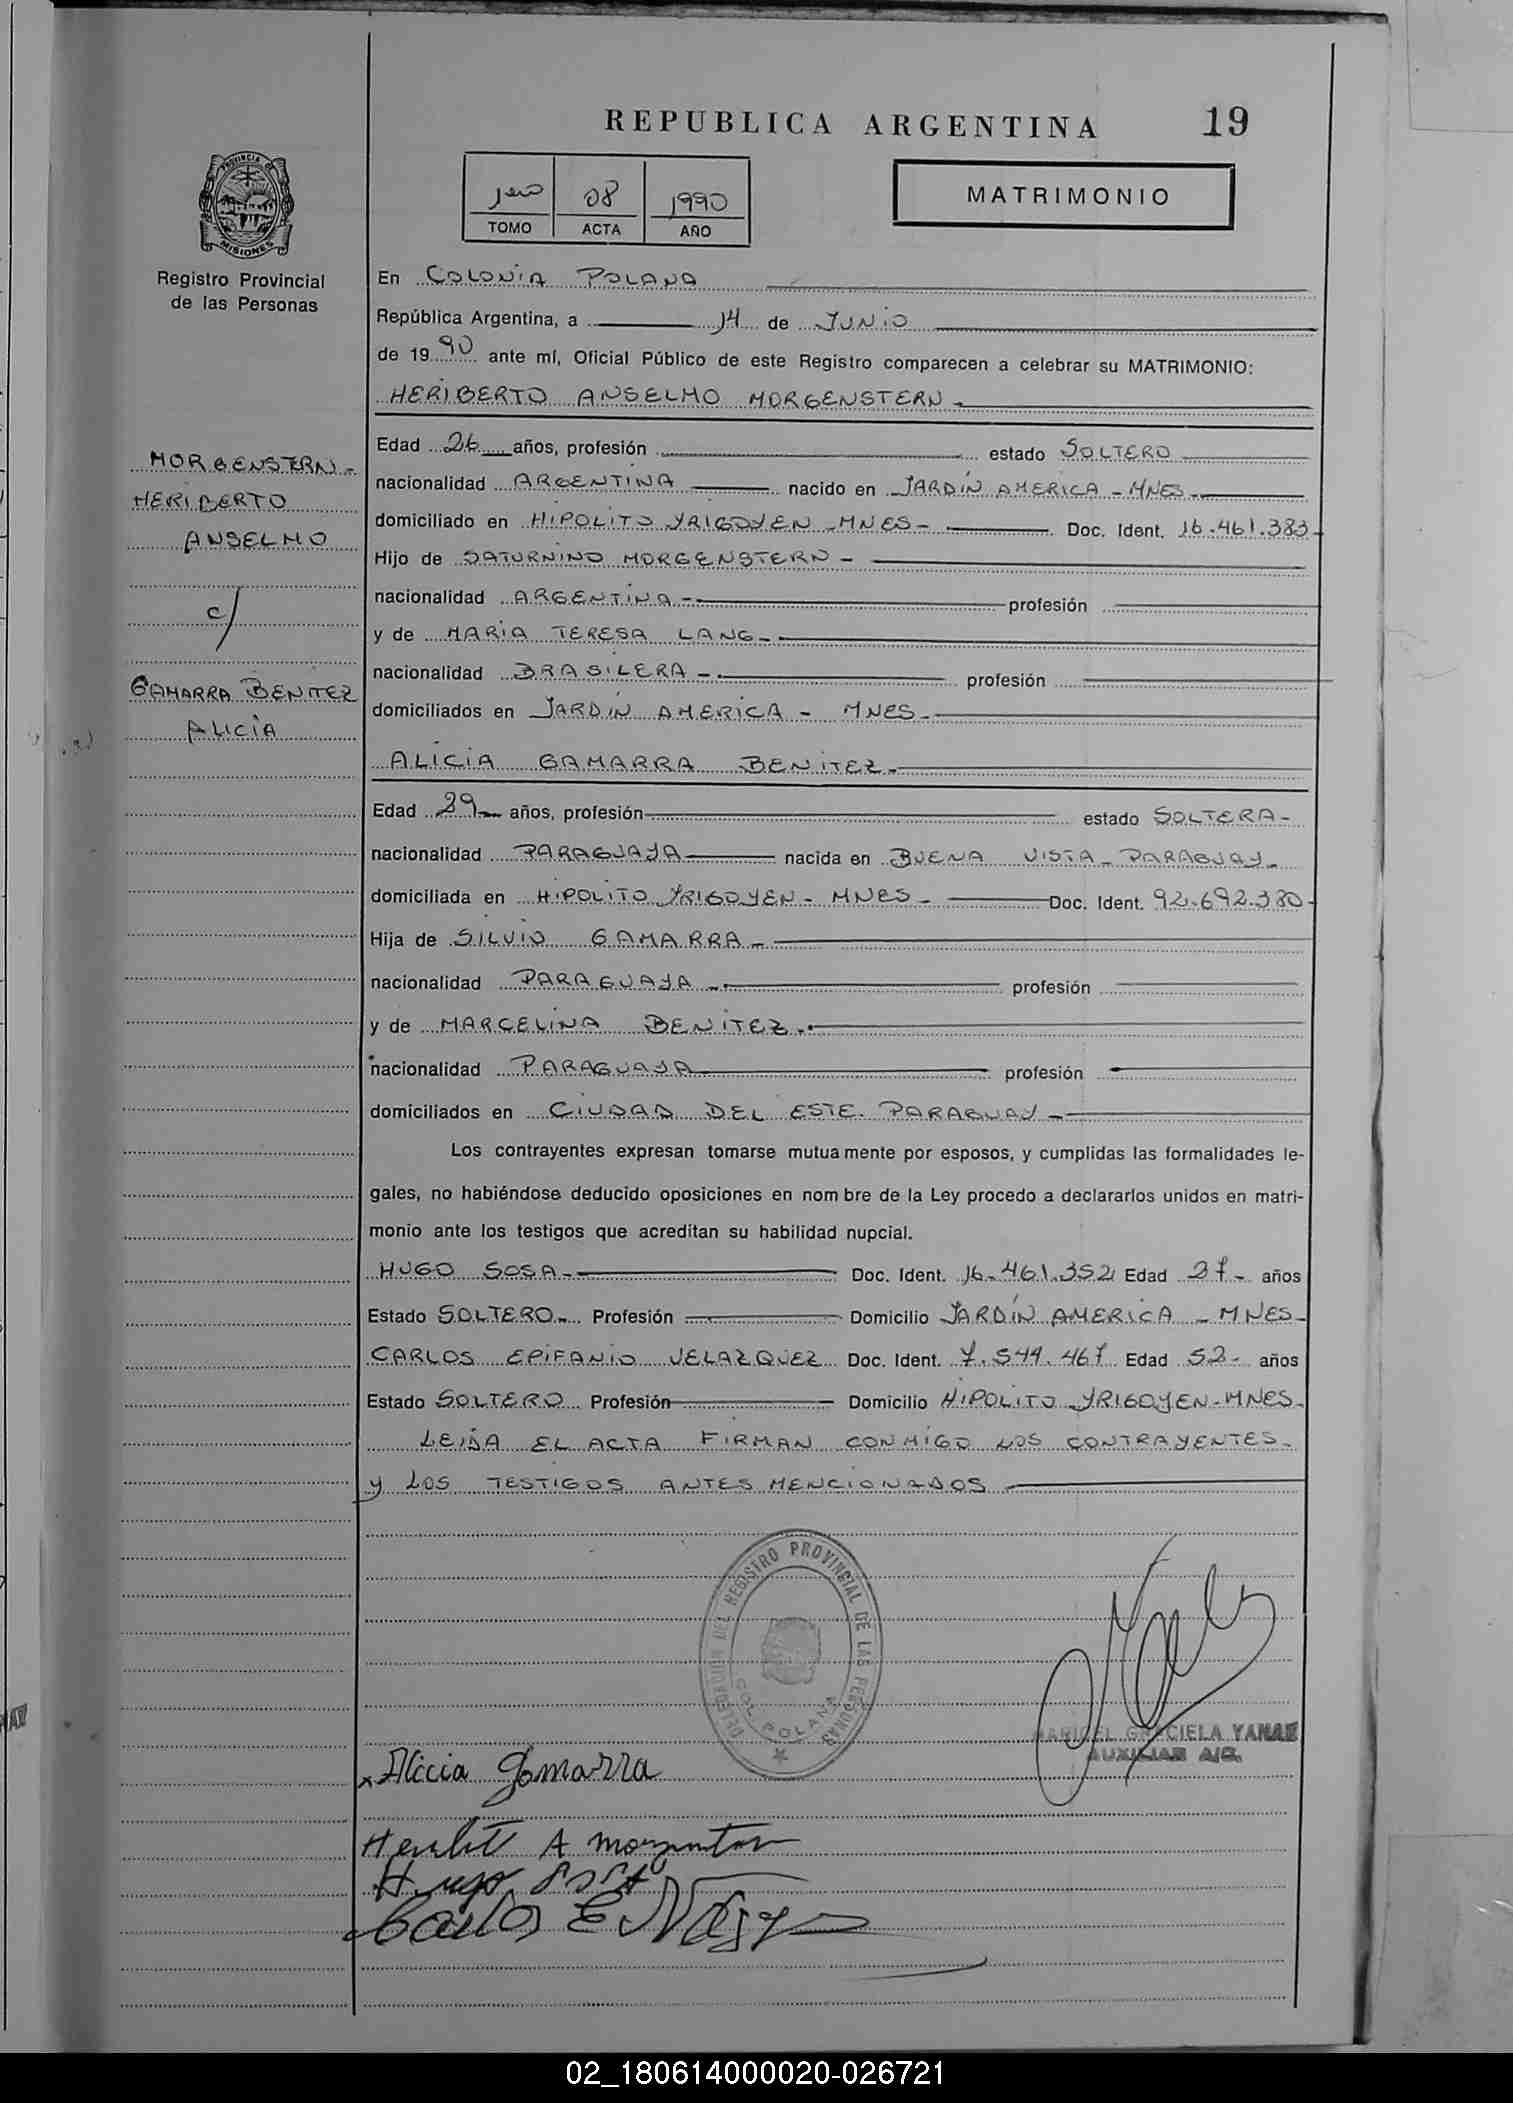 REPUBLICA ARGENTINA 19
PROVINCIA DE
MISIONES
08 1990
TOMO ACTA AÑO
MATRIMONIO
Registro Provincial
de las Personas
En COLONIA POLANA
República Argentina, a 14 de JUNIO
de 1990 ante mí, Oficial Público de este Registro comparecen a celebrar su MATRIMONIO:
HERIBERTO ANSELMO MORGENSTERN -
MORGENSTERN -
HERIBERTO
ANSELMO
c/
GAMARRA BENITEZ
ALICIA
Edad 26 años, profesión estado SOLTERO
nacionalidad ARGENTINA nacido en JARDIN AMERICA - MNES -
domiciliado en HIPOLITO YRIGOYEN - MNES - Doc. Ident. 16.461.383 -
Hijo de SATURNINO MORGENSTERN -
nacionalidad ARGENTINA - profesión
y de MARIA TERESA LANG -
nacionalidad BRASILERA - profesión
domiciliados en JARDIN AMERICA - MNES -
ALICIA GAMARRA BENITEZ -
Edad años, profesión estado SOLTERA -
nacionalidad PARAGUAYA nacida en BUENA VISTA - PARAGUAY -
domiciliada en HIPOLITO YRIGOYEN - MNES - Doc. Ident. 92.692.380 -
Hija de SILVIO GAMARRA -
nacionalidad PARAGUAYA - profesión
y de MARCELINA BENITEZ -
nacionalidad PARAGUAYA profesión
domiciliados en CIUDAD DEL ESTE. PARAGUAY -
Los contrayentes expresan tomarse mutuamente por esposos, y cumplidas las formalidades le-
gales, no habiéndose deducido oposiciones en nombre de la Ley procedo a declararlos unidos en matri-
monio ante los testigos que acreditan su habilidad nupcial.
HUGO SOSA - Doc. Ident. 16.461.352 Edad años
Estado SOLTERO - Profesión Domicilio JARDIN AMERICA - MNES -
CARLOS EPIFANIO VELAZQUEZ Doc. Ident. 7.544.467 Edad 52 - años
Estado SOLTERO Profesión Domicilio HIPOLITO YRIGOYEN - MNES -
LEIDA EL ACTA FIRMAN CONMIGO LOS CONTRAYENTES -
Y LOS TESTIGOS ANTES MENCIONADOS
DELEGACION DEL REGISTRO PROVINCIAL DE LAS PERSONAS
COL. POLANA
MARICEL GRACIELA
AUXILIAR A/C.
x Alicia Gamarra
Hugo Sosa
Carlos E
02_180614000020-026721